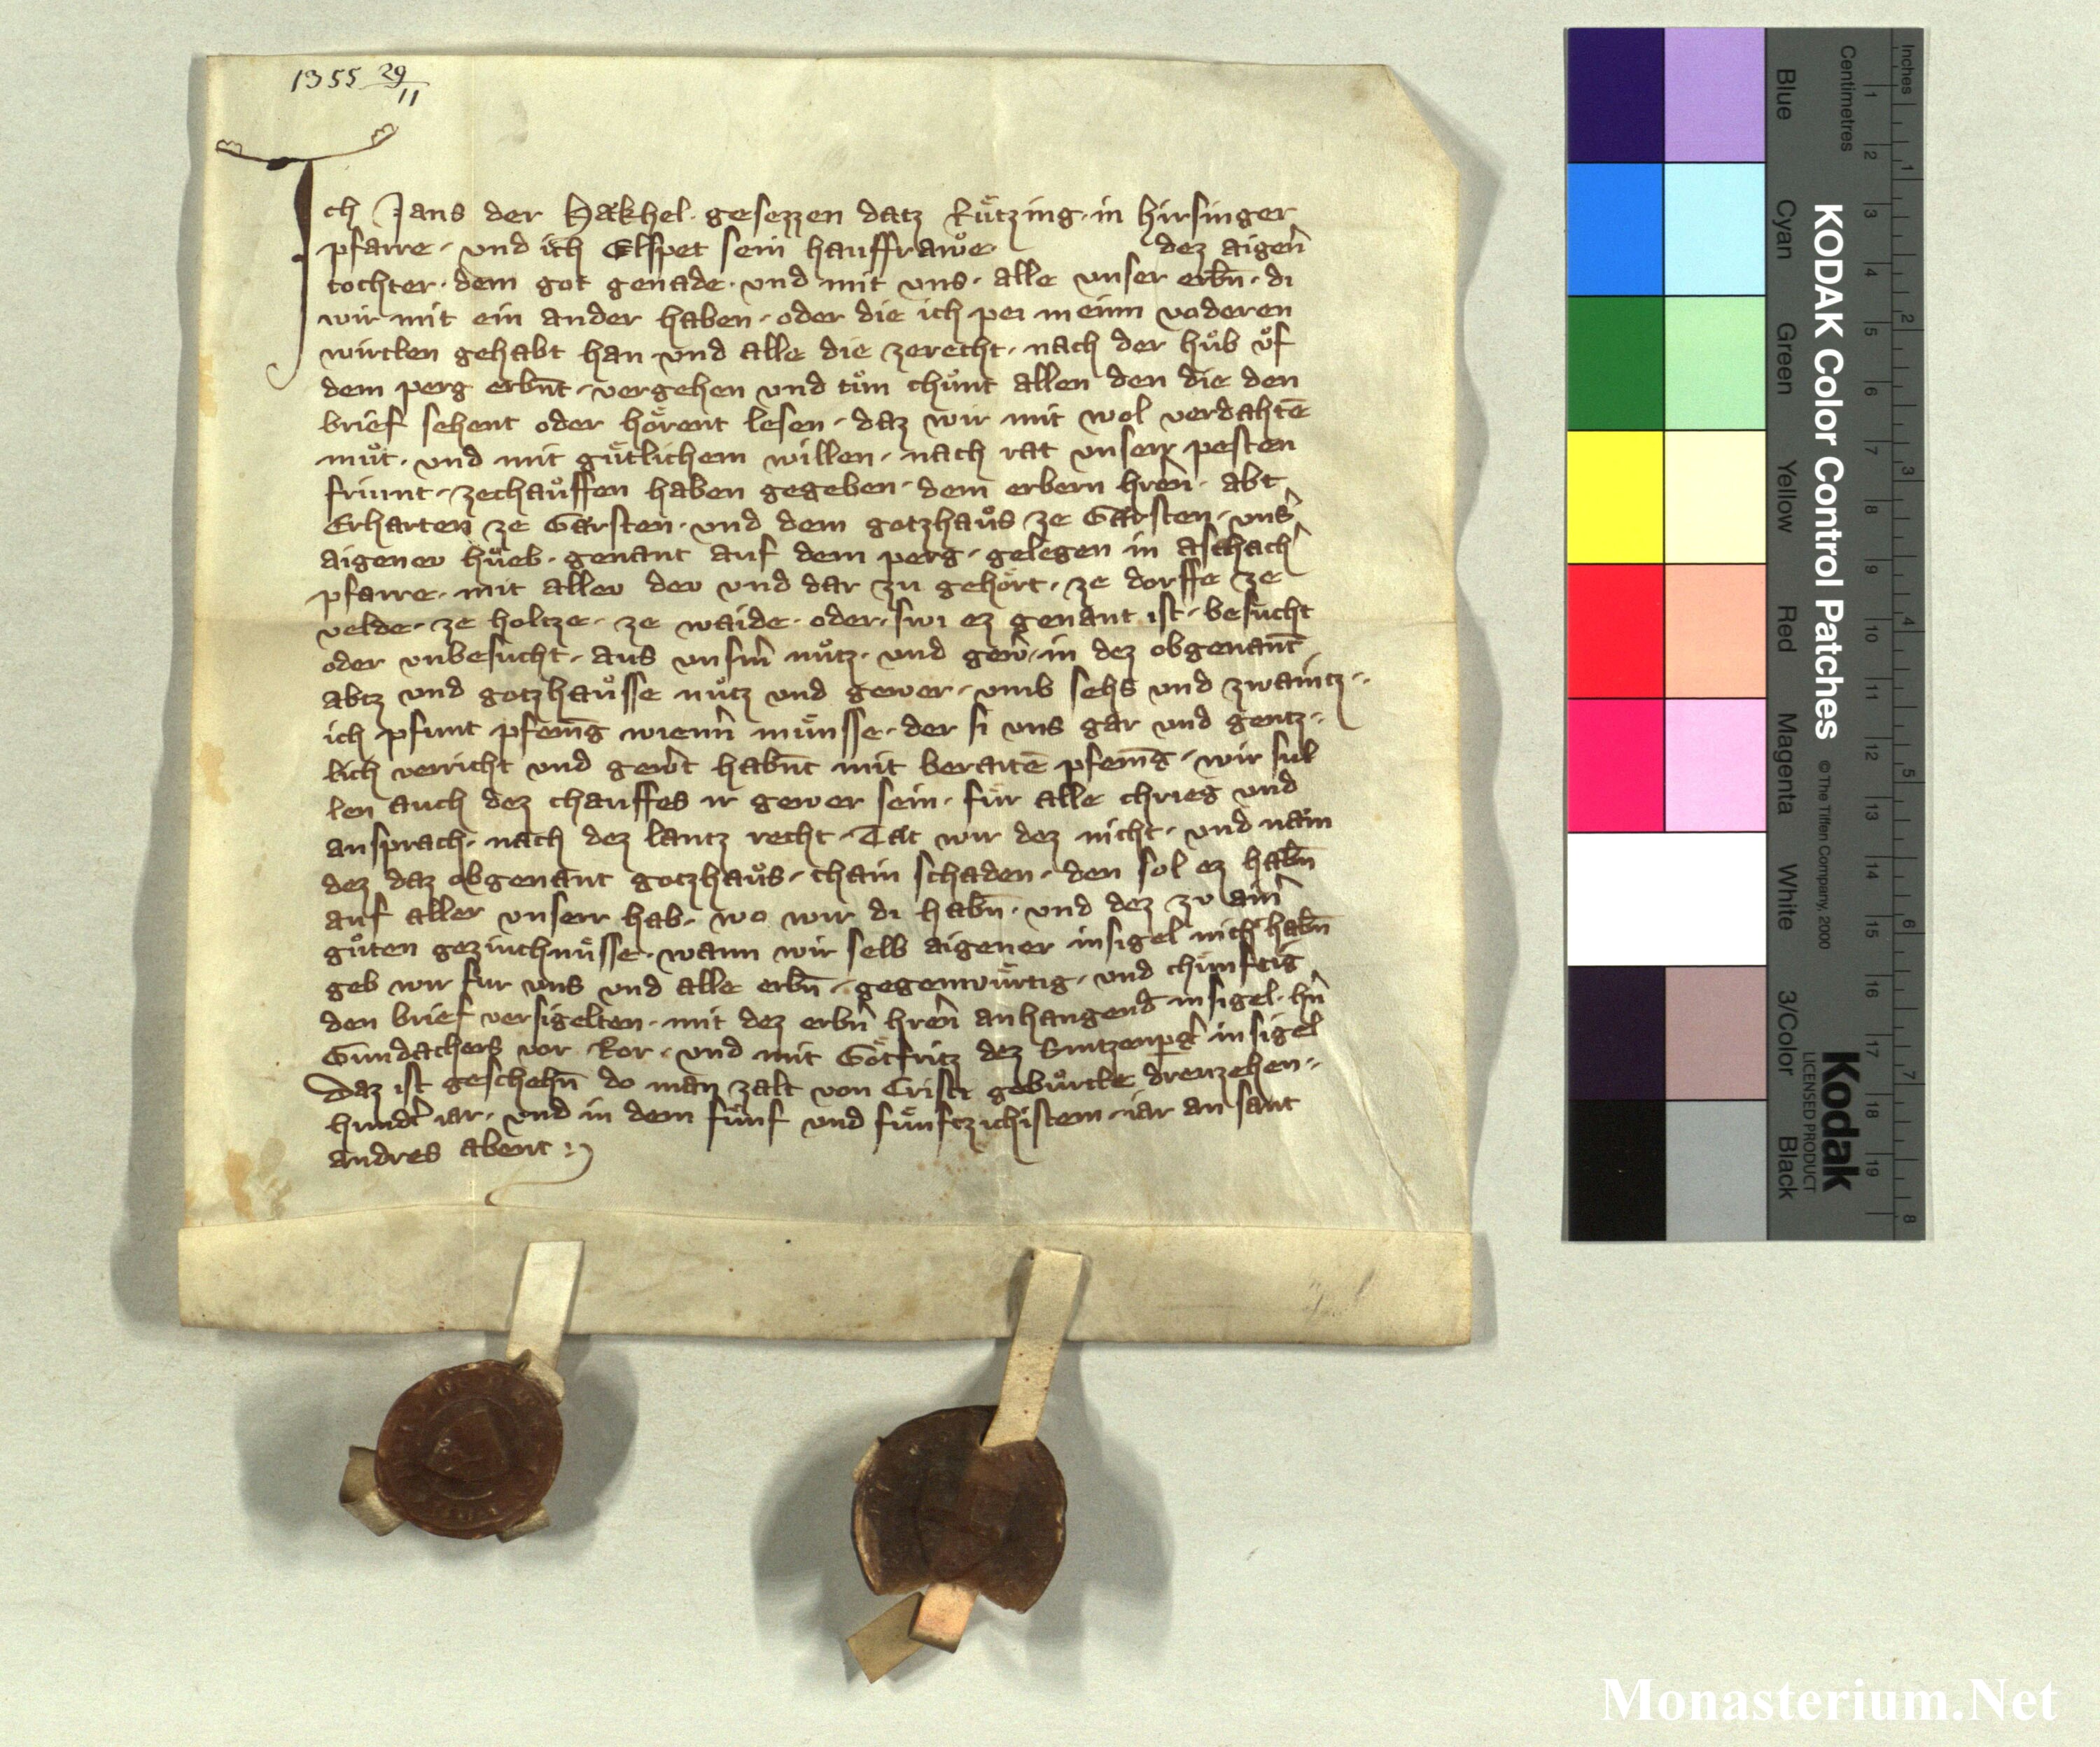 1355 29/11
Ich Jans der Hækhel· gesezzen datz Růtzing· in hirsinger
pfarre· vnd ich Elspet sein hausfrawe· dez aigen̄
tochter· dem got genade· vnd mit vns· alle vnser erbn̄· di
wir mit ein ander haben· oder die ich pei meinn voderen
wirtten gehabt han vnd alle die zerecht· nach der hůb ůf
dem perg erbnt̄· vergehen vnd tůn chůnt allen den die den
brief sehent oder hörent lesen· daz wir mit wol verdahtē
můt· vnd mit gůtlichem willen· nach rat vnserr pesten
friunt· zechauffen haben gegeben· dem erbern hren̄· abt
Erharten ze Gærsten· vnd dem gotzhaůs ze Gærsten· vns̄
aigener hůeb· genant auf dem perg· gelegen in aschach̄
pfarre· mit aller der vnd dar zu gehört· ze dorffe ze
velde· ze holtze· ze waide· oder· swi ez genant ist· besucht
oder vnbesucht· aus vnserm̄ nůtz· vnd gew̄· in dez obgenant̄
abtz vnd gotzhaůsse nůtz vnd gewer· vmb sehs vnd zwaintz··
ich pfunt pfenn̄g wienn̄ můnsse· der si vns gar vnd gentz··
lich verricht vnd gew̄t habnt̄ mit beraitē pfenn̄g· wir sul
len auch dez chauffes ir gewer sein· fůr alle chrieg vnd
ansprach· nach dez lantz recht· Tæt wir dez nicht· vnd næm
dez daz obgenant gotzhaůs· chain schaden· den sol ez habn̄
auf aller vnserr hab· wo wir di habn̄· vnd dez zu ain̄
gůten geziuchnůsse· wann wir selb aigener insigel nicht habn̄
geb wir fur vns vnd alle erbn̄· gegenwůrtig· vnd chůnftig
den brief versigelten· mit dez erbn̄ hren̄ anhangend insigel· hn̄
Gundachers vor Ror· vnd mit Götfritz dez insigel
Daz ist geschehn̄ do man zalt von Cristi gebůrtte drewzehen··
hundt̄ iar· vnd in dem fůnf vnd fůnftzichistem· iar an sant
andres abent
KODAK Color Control Patches
© The Tiffen Company, 2000
Kodak
LICENSED PRODUCT
Inches
Centimetres
1 2 3 4 5 6 7 8
1 2 3 4 5 6 7 8 9 10 11 12 13 14 15 16 17 18 19
Blue
Cyan
Green
Yellow
Red
Magenta
White
3/Color
Black
Monasterium.Net